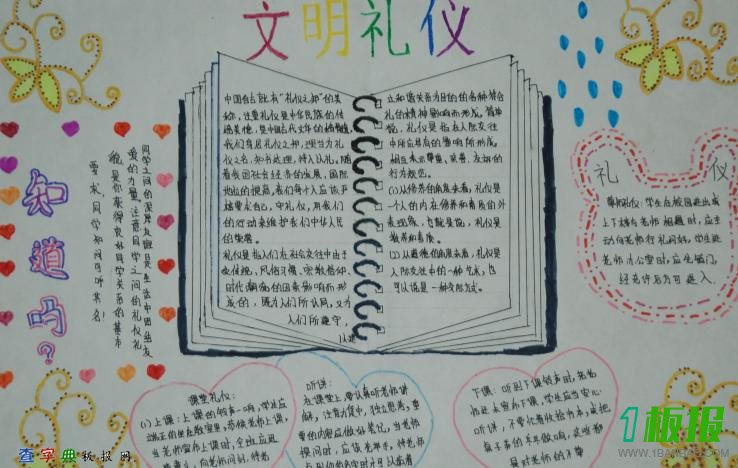 文明礼仪
中国自古就有“礼仪之邦”的美
称，注重礼仪是中华民族的传
统美德，是中国古代文明的精髓
我们身居礼仪之邦，理应为礼
仪之名，知书达理，待人以礼，随
着我国社会经济的发展，国际
地位的提高，我们每个人应该严
格要求自己，守礼仪，用我们
的行动来维护我们中华人民
的荣誉。
礼仪是指人们在社会交往中由于
受传统，风俗习惯，宗教信仰，
时代潮流的因素影响而形
成的，既为人们所认同，又为
人们所遵守，
以建
立和谐关系为目的的各种符合
礼的精神
说，礼仪是指在人际交往
相互表示尊重，友善，友好的
行为规范。
(1)从修养的角度来看，礼仪是
一个人的内在修养和素质的外
表现，也就是说，礼仪是
教养和素质。
(2)从道德的角度来看，礼仪是
人际交往中的一种艺术，也
可以说是一种交际方式。
礼 仪
尊师礼仪：学生在校园进出或
上下楼与老师相遇时，应主
动向老师行礼问好，学生进
老师办公室时，应先敲门，
经允许后方可进入
知道吗？
同学之间的深厚友谊是生活中团结友
爱的力量，注意同学之间的礼仪礼
貌，是你获得良好同学关系的基本
要求，同学知问可呼其名！
课堂礼仪：
(1)上课：上课的铃声一响，学生应
端正的坐在教室里，恭候老师上课，
当老师宣布上课时，全班应迅
听讲：
在课堂上，要认真听老师讲
解，注意力集中，独立思考，重
要的内容应做好笔记，当老师
提问时，应该先举手，待老师
下课：听到下课铃声时，若老
师还未宣布下课，学生应当安心
听讲，不要忙着收拾书本，或把
桌子弄的乒乓做响，这些都
是对老师的不尊
查字典板报网
1板报
WWW.1BANBAO.COM